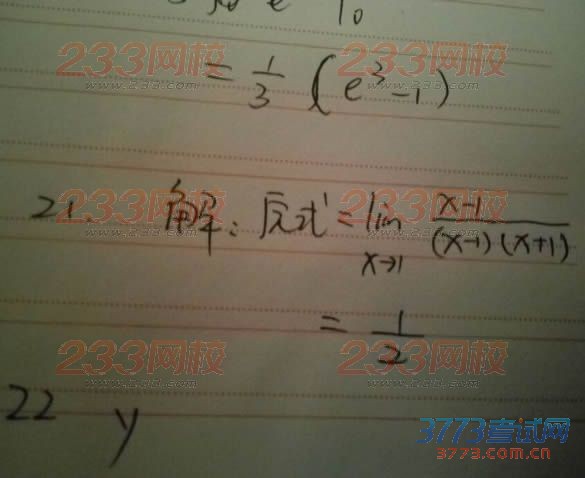 = 1/3 (e³-1)
21. 解:原式 = lim x→1 x-1/(x-1)(x+1)
= 1/2
22 y
233网校
www.233.com
233网校
www.233.com
233网校
www.233.com
233网校
www.233.com
233网校
www.233.com
233网校
www.233.com
3773考试网
3773.com.cn